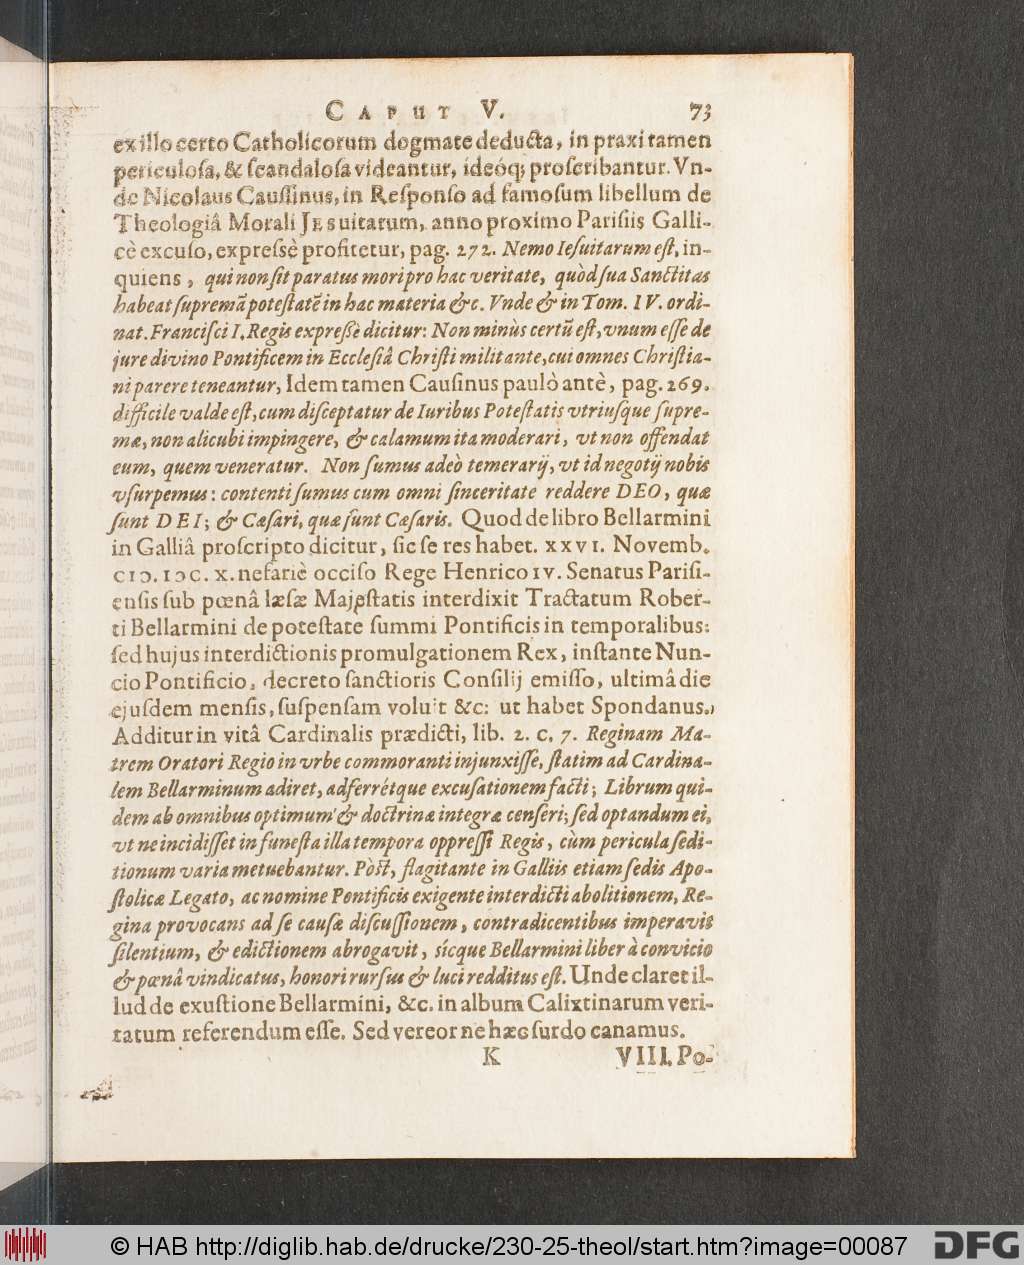 CAPUT V. 73
ex illo certo Catholicorum dogmate deducta, in praxi tamen
periculosa, & scandalosa videantur, ideóq; proscribantur. Vn-
de Nicolaus Caussinus, in Responso ad famosum libellum de
Theologiâ Morali JEsuitarum, anno proximo Parisiis Galli-
cè excuso, expressè profitetur, pag. 272. Nemo Iesuitarum est, in-
quiens, qui non sit paratus mori pro hac veritate, quòd sua Sanctitas
habeat supremã potestatẽ in hac materia &c. Vnde & in Tom. IV. ordi-
nat. Francisci I. Regis expreßè dicitur: Non minùs certũ est, vnum esse de
jure divino Pontificem in Ecclesiâ Christi militante, cui omnes Christia-
ni parere teneantur, Idem tamen Causinus paulò antè, pag. 269.
difficile valde est, cum disceptatur de Iuribus Potestatis vtriusque supre-
mæ, non alicubi impingere, & calamum ita moderari, vt non offendat
eum, quem veneratur. Non sumus adeò temerarij, vt id negotij nobis
vsurpemus: contenti sumus cum omni sinceritate reddere DEO, quæ
sunt DEI; & Cæsari, quæ sunt Cæsaris. Quod de libro Bellarmini
in Galliâ proscripto dicitur, sic se res habet. XXVI. Novemb.
CIↃ. IↃC. X. nefariè occiso Rege Henrico IV. Senatus Parisi-
ensis sub pœnâ læsæ Majestatis interdixit Tractatum Rober-
ti Bellarmini de potestate summi Pontificis in temporalibus:
sed hujus interdictionis promulgationem Rex, instante Nun-
cio Pontificio, decreto sanctioris Consilij emisso, ultimâ die
ejusdem mensis, suspensam voluit &c: ut habet Spondanus.
Additur in vitâ Cardinalis prædicti, lib. 2. c. 7. Reginam Ma-
trem Oratori Regio in vrbe commoranti injunxisse, statim ad Cardina-
lem Bellarminum adiret, adferrétque excusationem facti; Librum qui-
dem ab omnibus optimum & doctrinæ integræ censeri; sed optandum ei,
vt ne incidisset in funesta illa tempora oppressi Regis, cùm pericula sedi-
tionum varia metuebantur. Pòst, flagitante in Galliis etiam sedis Apo-
stolicæ Legato, ac nomine Pontificis exigente interdicti abolitionem, Re-
gina provocans ad se causæ discussionem, contradicentibus imperavit
silentium, & edictionem abrogavit, sícque Bellarmini liber à convicio
& pœnâ vindicatus, honori rursus & luci redditus est. Unde claret il-
lud de exustione Bellarmini, &c. in album Calixtinarum veri-
tatum referendum esse. Sed vereor ne hæc surdo canamus.
K VIII. Po-
© HAB http://diglib.hab.de/drucke/230-25-theol/start.htm?image=00087 DFG